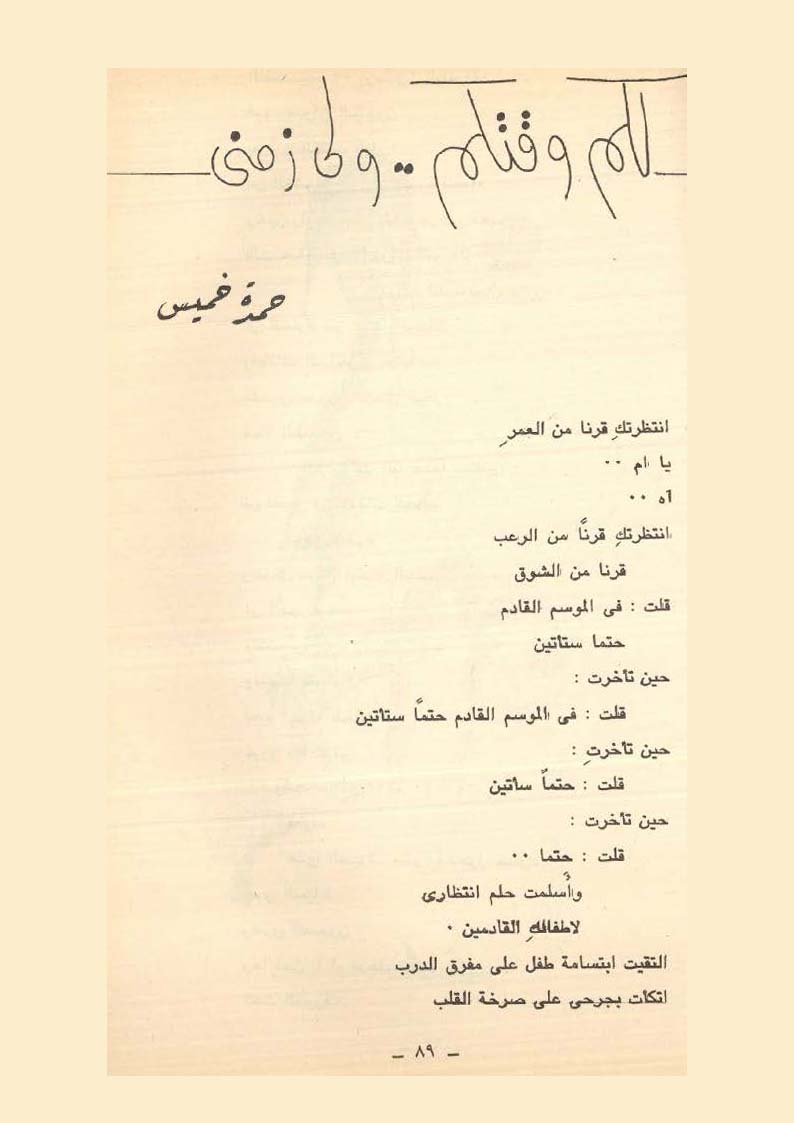 لكم وقتكم .. ولى زمنى
حمدة خميس
انتظرتكِ قرنا من العمرِ
يا ام ٠٠
آه ٠٠
انتظرتكِ قرناً من الرعب
قرنا من الشوق
قلت : فى الموسم القادم
حتما ستأتين
حين تأخرت :
قلت : فى الموسم القادم حتماً ستأتين
حين تأخرتِ :
قلت : حتماً سأتين
حين تأخرت :
قلت : حتما ٠٠
وأسلمت حلم انتظارى
لاطفالهِ القادمين ٠
التقيت ابتسامة طفل على مفرق الدرب
اتكأت بجرحى على صرخة القلب
— ٨٩ —